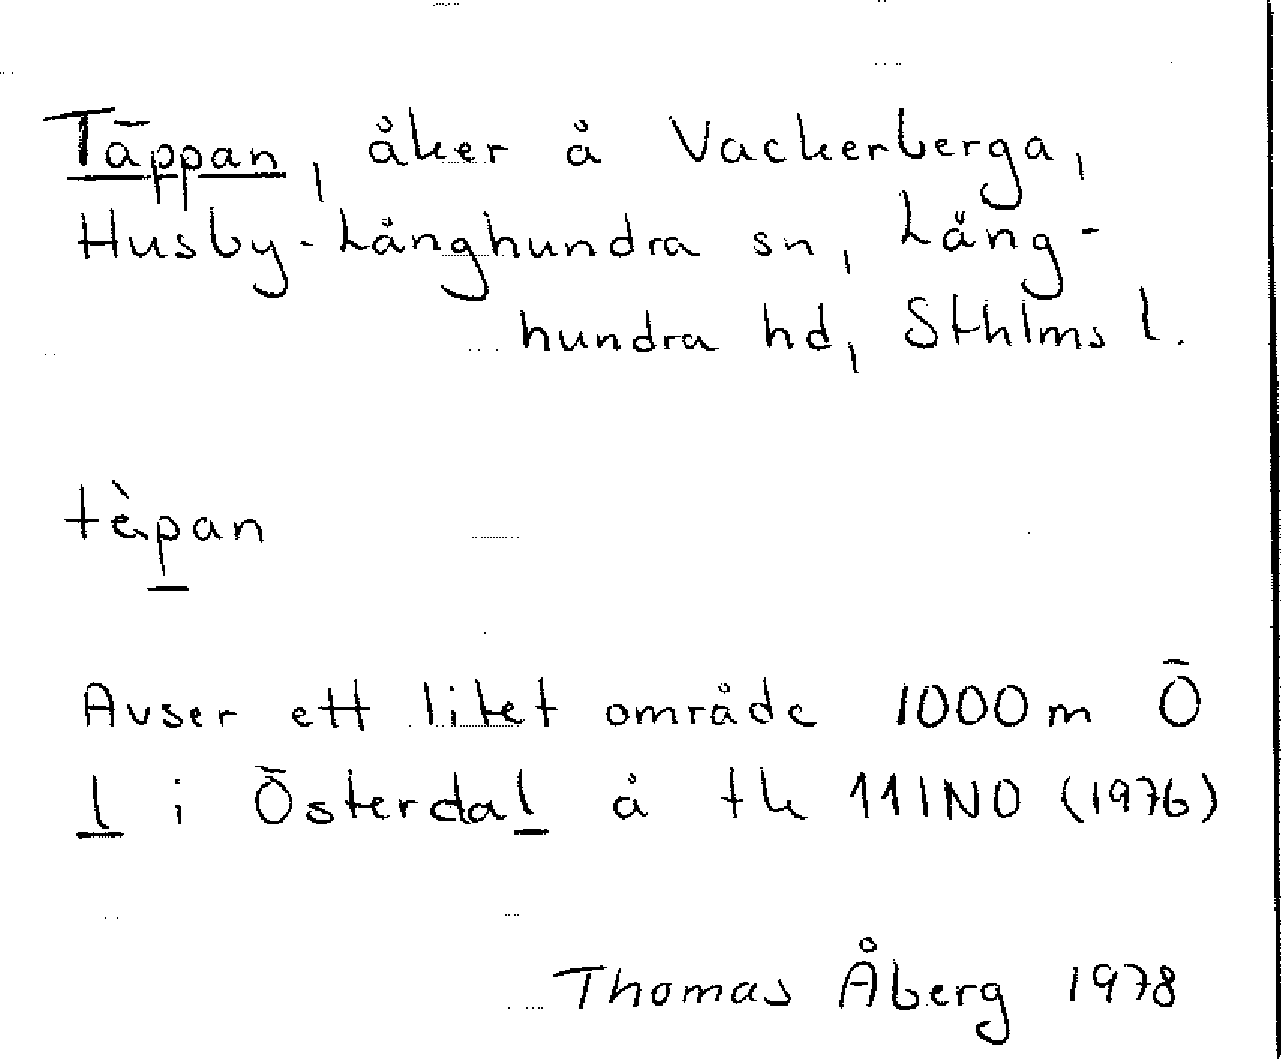 Täppan, åker å Vackerberga,
Husby-Långhundra sn, Lång-
hundra hd, Sthlms l.
tæ̀pan
Avser ett litet område 1000 m Ö
l i Österdal å tk 11INO (1976)
Thomas Åberg 1978